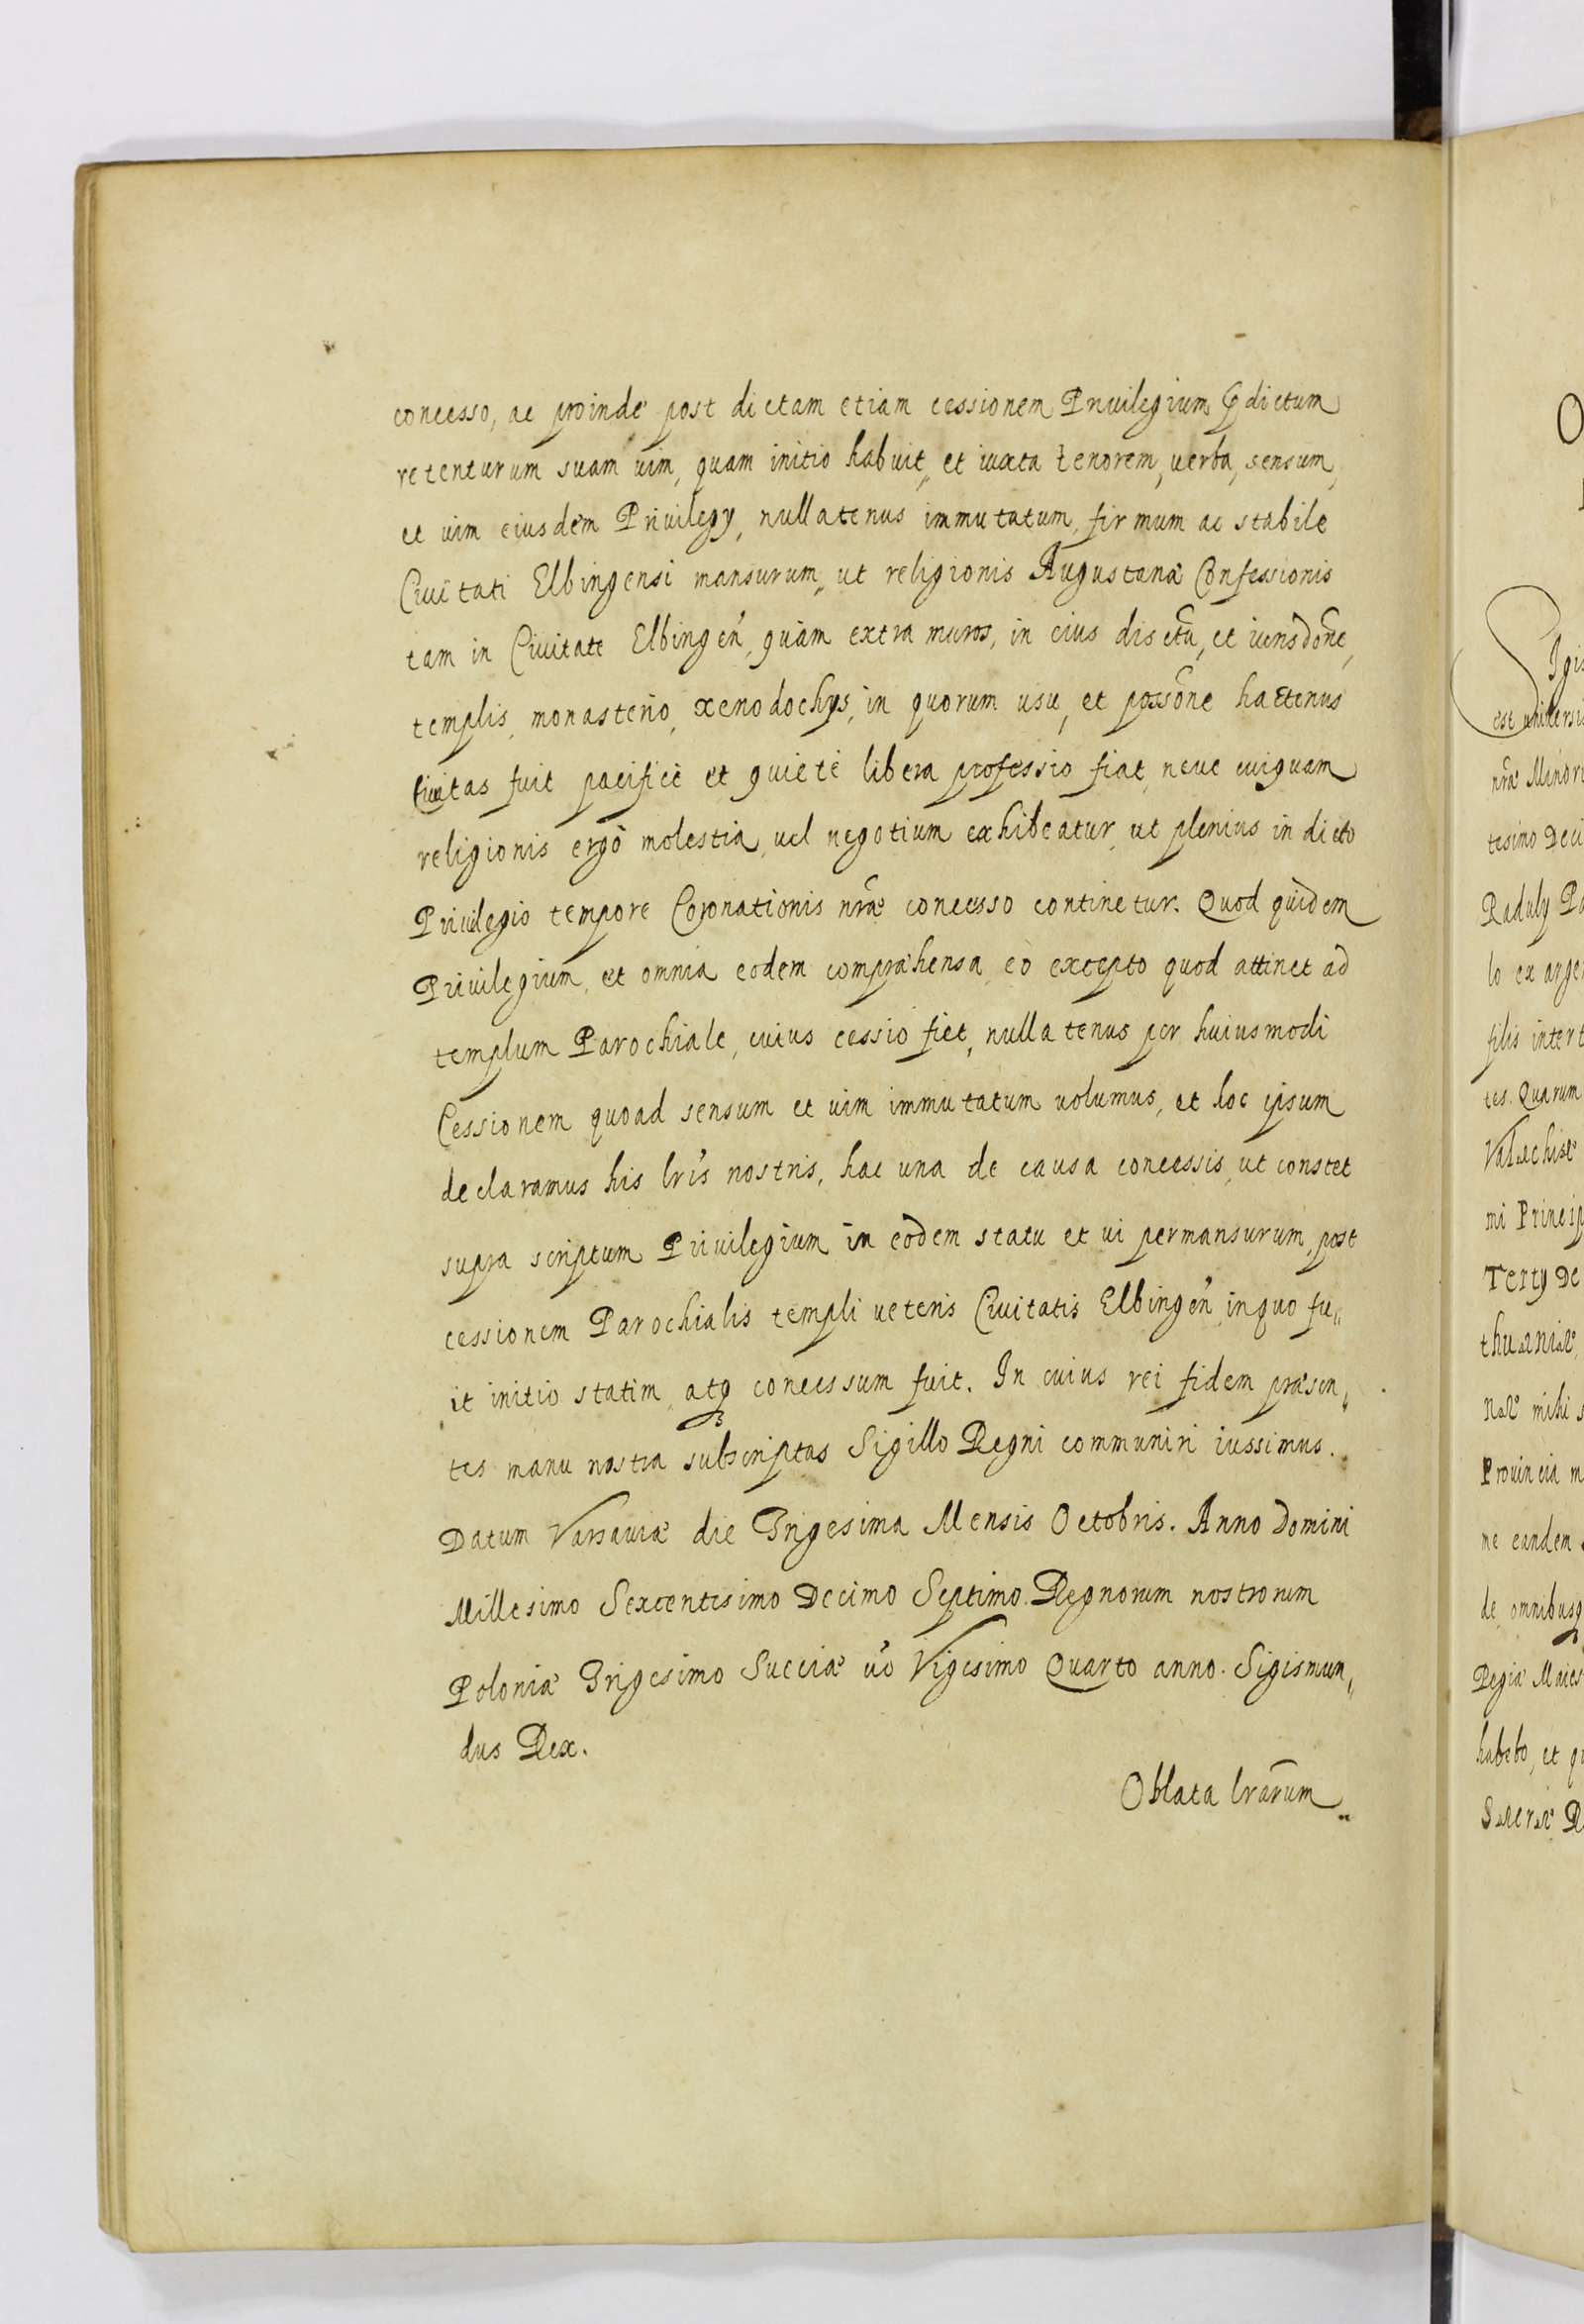 concesso, ac proinde post dictam etiam cessionem Privilegium pdictum
retenturum suam uim, quam initio habuit, et iuxta tenorem, uerba, sensum,
et uim eiusdem Privilegy, nullatenus immutatum, firmum ac stabile
Civitati Elbingensi mansurum, ut religionis Augustanæ Confessionis
tam in Civitate Elbingeñ, quàm extra muros, in eius disctũ, et iurisdone,
templis, monasterio, xenodochys, in quorum usu, et possone hactenus
Civitas fuit pacificè et quietè libera professio fiat, neue cuiquam
religionis ergò molestia, uel negotium exhibeatur, ut plenius in dicto
Privilegio tempore Coronationis nræ concesso continetur. Quod quidem
Privilegium, et omnia eodem compræhensa, eò excepto quod attinet ad
templum Parochiale, cuius cessio fiet, nullatenus per huiusmodi
Cessionem quoad sensum et uim immutatum uolumus, et hoc ipsum
declaramus his lris nostris, hac una de causa concessis, ut constet
supra scriptum Privilegium in eodem statu et ui permansurum, post
cessionem Parochialis templi ueteris Civitatis Elbingeñ, in quo fu„
it initio statim, atq concessum fuit. In cuius rei fidem præsen„
tes manu nostra subscriptas Sigillo Regni communiri iussimus.
Datum Varsaviæ die Trigesima Mensis Octobris. Anno Domini
Millesimo Sexcentesimo Decimo Septimo. Regnorum nostrorum
Poloniæ Trigesimo Sueciæ uo Vigesimo Quarto anno. Sigismun„
dus Rex.
Oblata lrarum
O
Sigis
est uniuersis
nræ Minori
tesimo Deci
Raduly Pa
lo ex arge
filis intert
tes. Quarum
Valachiæ
mi Princip
Terty De
thuaniæ,
næ mihi s
Prouincia m
me eandem
de omnibusq
Regiæ Maies
habebo, et q
Sacræ R